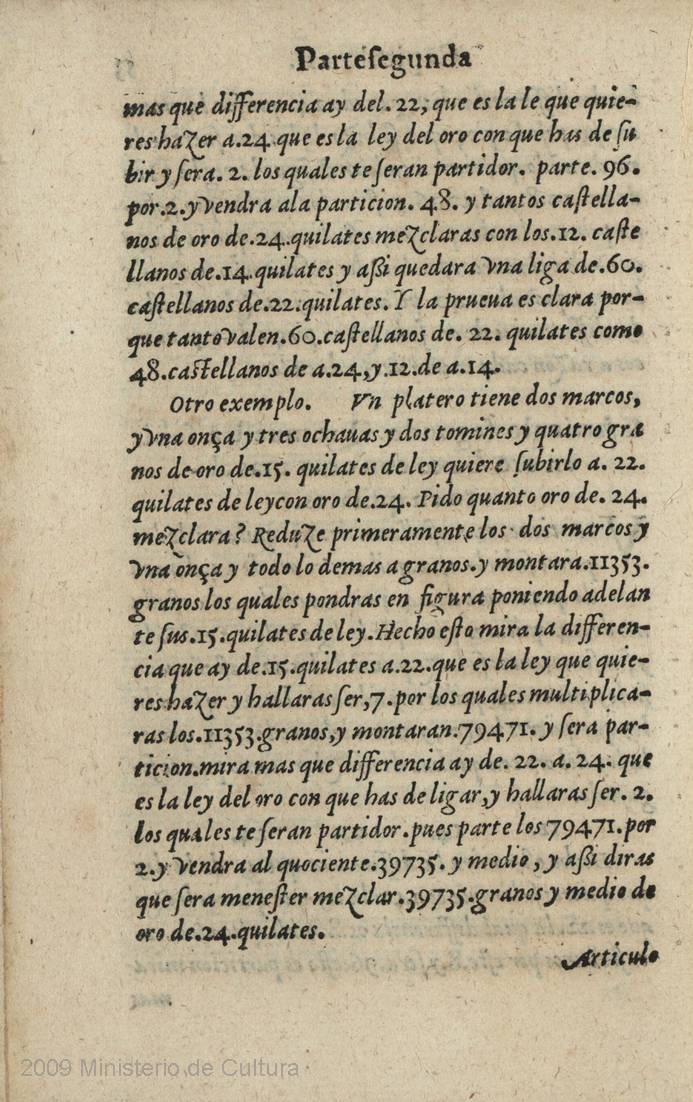 Parte segunda
mas que differencia ay del. 22, que es la le que quie-
res hazer a.24 que es la ley del oro con que has de su
bir y sera. 2. los quales te seran partidor. parte. 96.
por.2.y vendra ala particion. 48. y tantos castella-
nos de oro de.24.quilates mezclaras con los.12. caste
llanos de.14.quilates y aßi quedara vna liga de.60.
castellanos de.22.quilates. Y la prueua es clara por-
que tanto valen.60.castellanos de. 22. quilates como
48.castellanos de a.24,y.12.de a.14.
Otro exemplo. Vn platero tiene dos marcos,
y vna onça y tres ochauas y dos tomines y quatro gra
nos de oro de.15. quilates de ley quiere subirlo a. 22.
quilates de ley con oro de.24. Pido quanto oro de. 24.
mezclara? Reduze primeramente los dos marcos y
vna onça y todo lo demas a granos.y montara.11353.
granos los quales pondras en figura poniendo adelan
te sus.15.quilates de ley.Hecho esto mira la differen-
cia que ay de.15.quilates a.22.que es la ley que quie-
res hazer y hallaras ser,7.por los quales multiplica-
ras los.11353.granos,y montaran.79471. y sera par-
ticion.mira mas que differencia ay de. 22. a. 24. que
es la ley del oro con que has de ligar,y hallaras ser. 2.
los quales te seran partidor.pues parte los 79471.por
2.y vendra al quociente.39735. y medio, y aßi diras
que sera menester mezclar.39735.granos y medio de
oro de.24.quilates.
Articulo
2009 Ministerio de Cultura